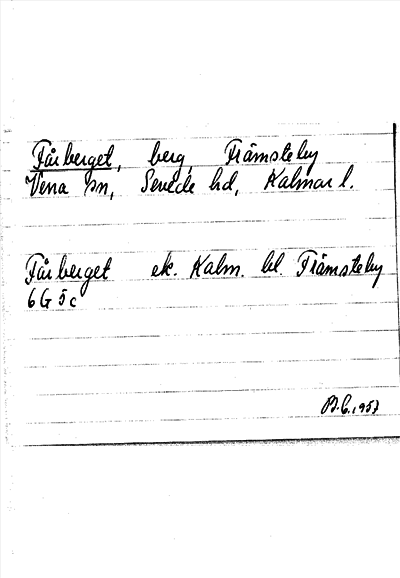 Fårberget, berg, Främsteby
Vena sn, Sevede hd, Kalmar l.
Fårberget ek. Kalm. bl. Främsteby
6 G 5 c
1957